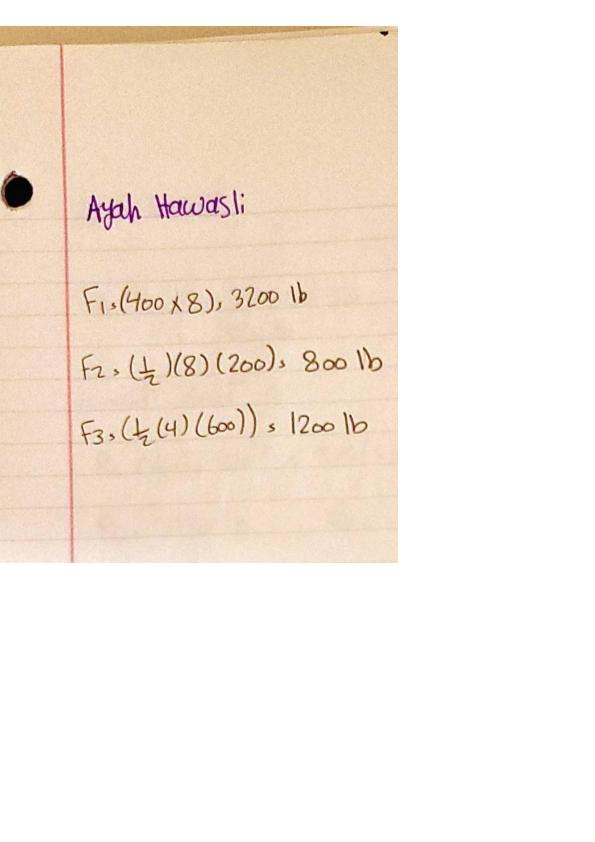 Ayah Hawasli
F1=(400×8)= 3200 lb
F2= (1/2)(8)(200)= 800 lb
F3=(1/2(4)(600)) = 1200 lb